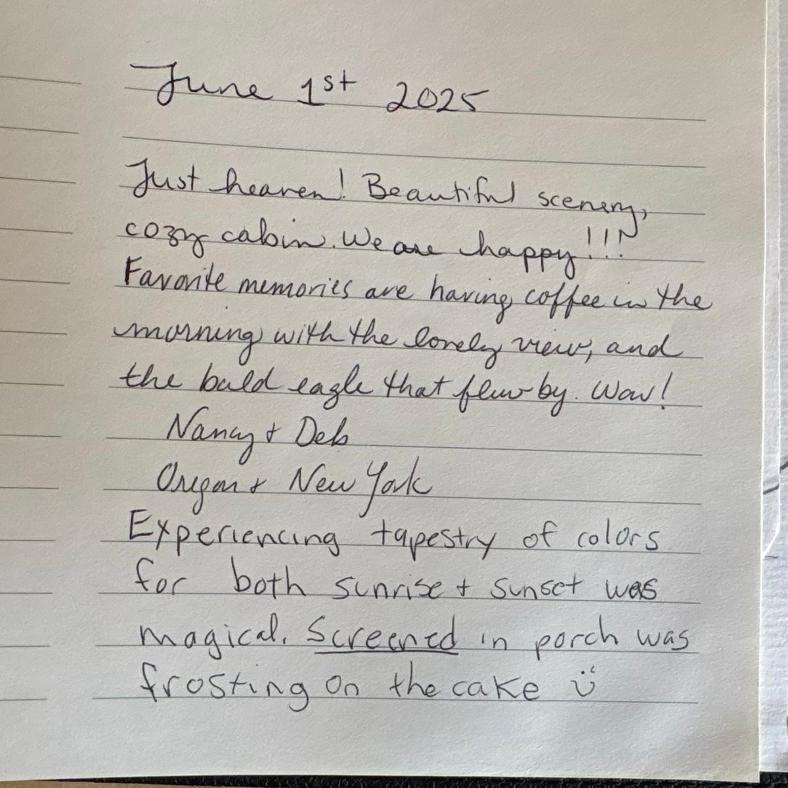 June 1st 2025
Just heaven! Beautiful scenery,
cozy cabin. We are happy!!!!
Favorite memories are having coffee in the
morning with the lovely view, and
the bald eagle that flew by. Wow!
Nancy + Deb
Oregon + New York
Experiencing tapestry of colors
for both sunrise + sunset was
magical. Screened in porch was
frosting on the cake ü